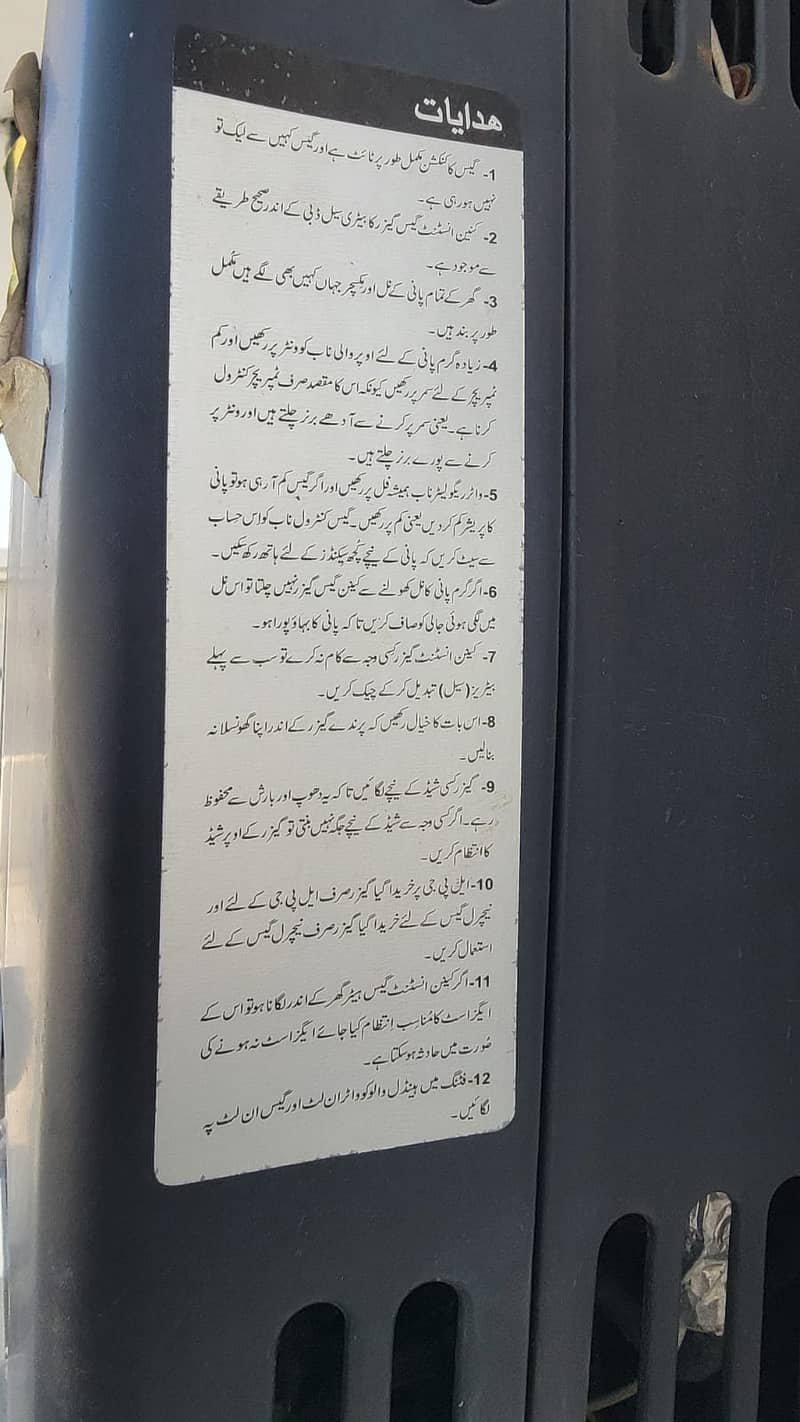 ھدایات
1- گیس کا کنکشن مکمل طور پر ٹائٹ ہے اور گیس کہیں سے لیک تو
نہیں ہو رہی ہے۔
2- کینن انسٹنٹ گیس گیزر کا بیٹری سیل ڈبی کے اندر صحیح طریقے
سے موجود ہے۔
3- گھر کے تمام پانی کے نل اور مکسچر جہاں کہیں بھی لگے ہیں مکمل
طور پر بند ہیں۔
4- زیادہ گرم پانی کے لئے اوپر والی ناب کو ونٹر پر رکھیں اور کم
ٹمپریچر کے لئے سمر پر رکھیں کیونکہ اس کا مقصد صرف ٹمپریچر کنٹرول
کرنا ہے۔ یعنی سمر پر کرنے سے آدھے برنر چلتے ہیں اور ونٹر پر
کرنے سے پورے برنر چلتے ہیں۔
5- واٹر ریگولیٹر ناب ہمیشہ فل پر رکھیں اور اگر گیس کم آ رہی ہو تو پانی
کا پریشر کم کر دیں یعنی کم پر رکھیں۔ گیس کنٹرول ناب کو اس حساب
سے سیٹ کریں کہ پانی کے نیچے کچھ سیکنڈز کے لئے ہاتھ رکھ سکیں۔
6- اگر گرم پانی کا نل کھولنے سے کینن گیس گیزر نہیں چلتا تو اس نل
میں لگی ہوئی جالی کو صاف کریں تا کہ پانی کا بہاؤ پورا ہو۔
7- کینن انسٹنٹ گیزر کسی وجہ سے کام نہ کرے تو سب سے پہلے
بیٹریز (سیل) تبدیل کر کے چیک کریں۔
8- اس بات کا خیال رکھیں کہ پرندے گیزر کے اندر اپنا گھونسلا نہ
بنالیں۔
9- گیزر کسی شیڈ کے نیچے لگائیں تا کہ یہ دھوپ اور بارش سے محفوظ
رہے۔ اگر کسی وجہ سے شیڈ کے نیچے جگہ نہیں بنتی تو گیزر کے اوپر شیڈ
کا انتظام کریں۔
10- ایل پی جی پر خریدا گیا گیزر صرف ایل پی جی کے لئے اور
نیچرل گیس کے لئے خریدا گیا گیزر صرف نیچرل گیس کے لئے
استعمال کریں۔
11- اگر کینن انسٹنٹ گیس ہیٹر گھر کے اندر لگانا ہو تو اس کے
ایگزاسٹ کا مُناسِب اِنتظام کیا جائے ایگزاسٹ نہ ہونے کی
صُورت میں حادثہ ہو سکتا ہے۔
12- فٹنگ میں ہینڈل والو کو واٹر ان لٹ اور گیس ان لٹ پہ
لگائیں۔